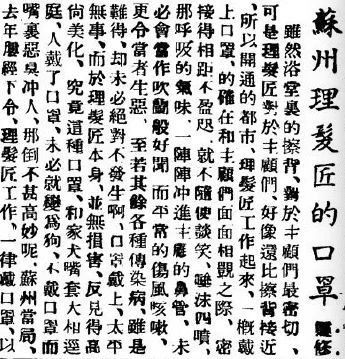 蘇州理髮匠的口罩
雖然浴堂裏的擦背、對於主顧們最密切、
可是理髮匠對於主顧們、好像還比擦背接近
、所以開通的都市、理髮匠工作起來、一概戴
上口罩、的確在和主顧們面面相覷之際、密
接得相距不盈咫、就不隨便談笑、唾沫四噴
那呼吸的氣味、一陣陣冲進主顧的鼻管、未
必會當作吹蘭般好聞、而平常的傷風咳嗽、
更令當者生惡、至若其餘各種傳染病、雖是
難得、却未必絕對不發生啊、口罩戴上、太平
無事、而於理髮匠本身、並無損害、反見得高
尙美化、究竟這種口罩、和家犬嘴套大相逕
庭、人戴了口罩、未必就變爲狗、不戴口罩而
嘴裏惡臭冲人、那倒不甚高妙呢、蘇州當局、
去年腰經下令、理髮匠工作、一律戴口罩、以